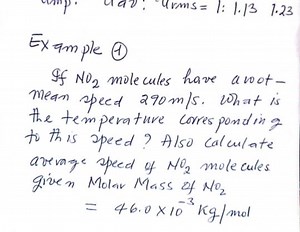 amp: uav: urms = 1: 1.13 1.23
Example ①
If NO₂ molecules have a root-
mean speed 290 m/s. What is
the temperature corresponding
to this speed? Also calculate
average speed of NO₂ molecules
given Molar Mass of NO₂
= 46.0 × 10⁻³ Kg/mol